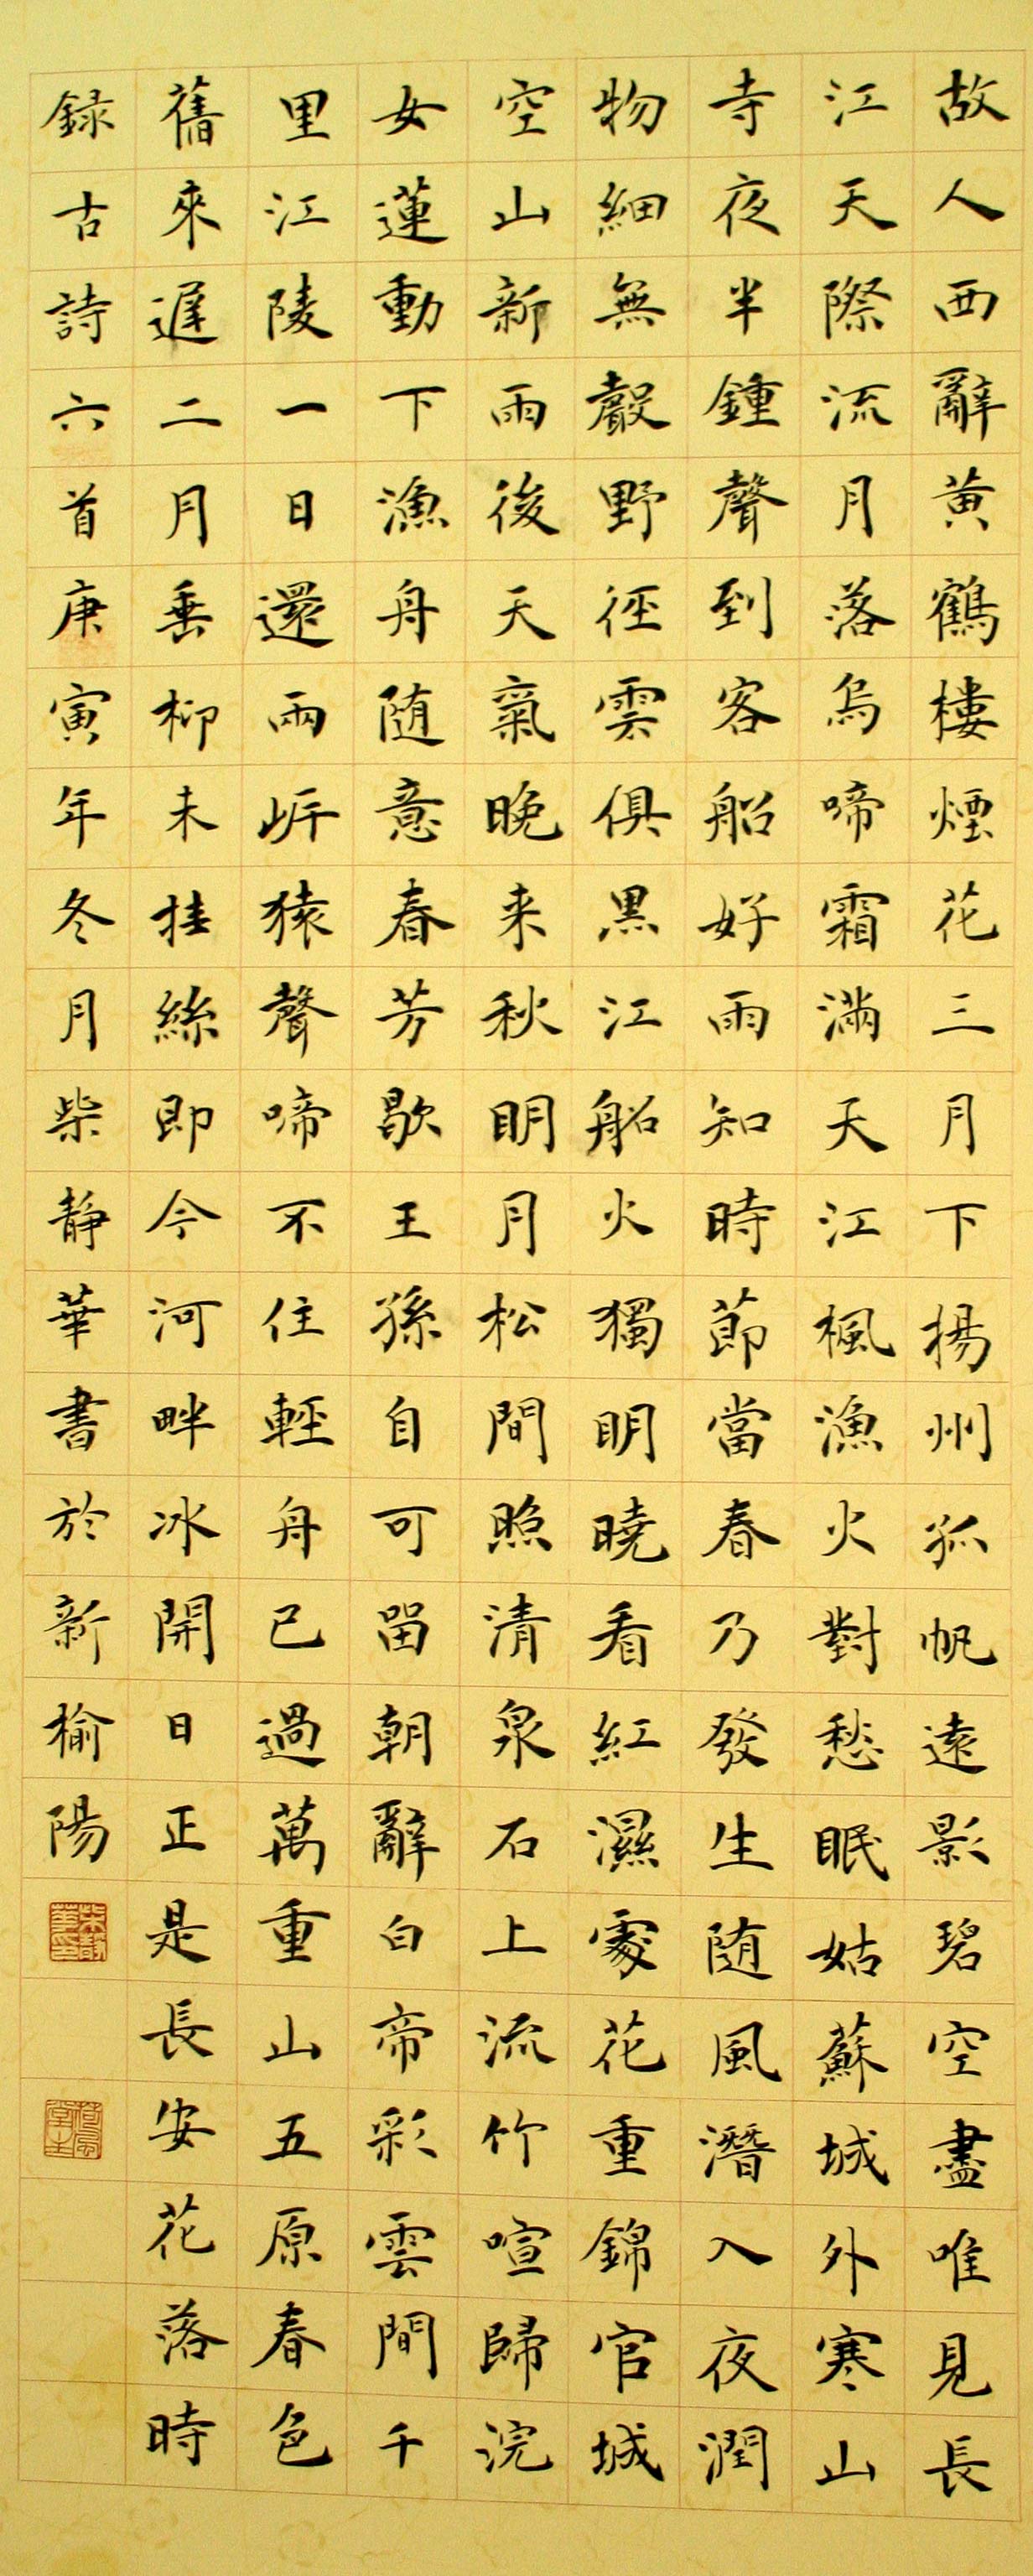 故人西辭黄鶴樓煙花三月下揚州孤帆遠影碧空盡唯見長
江天際流月落烏啼霜滿天江楓漁火對愁眠姑蘇城外寒山
寺夜半鍾聲到客船好雨知時節當春乃發生随風潛入夜潤
物細無聲野徑雲俱黑江船火獨明曉看紅濕處花重錦官城
空山新雨後天氣晚来秋明月松間照清泉石上流竹喧歸浣
女蓮動下漁舟随意春芳歇王孫自可留朝辭白帝彩雲間千
里江陵一日還兩岍猿聲啼不住輕舟已過萬重山五原春色
舊來遲二月垂柳未挂絲即今河畔冰開日正是長安花落時
録古詩六首庚寅年冬月柴靜華書於新榆陽